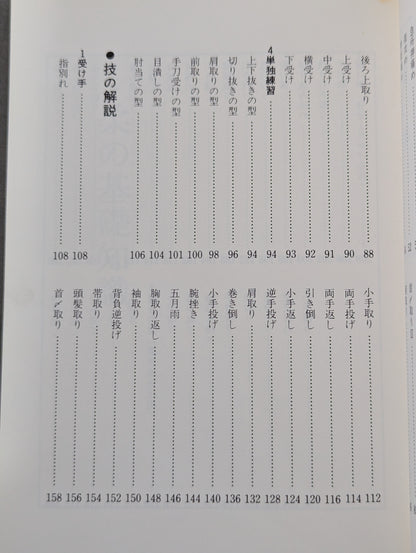 後ろ上取り 88
上受け 90
中受け 91
横受け 92
下受け 93
4 単独練習 94
上下抜きの型 94
切り抜きの型 96
肩取りの型 98
前取りの型 100
手刀受けの型 101
目潰しの型 104
肘当ての型 106
●技の解説
1 受け手 108
指別れ 108
小手取り 112
両手投げ 114
両手返し 116
引き倒し 120
小手返し 124
逆手投げ 128
肩取り 132
巻き倒し 136
小手投げ 140
腕挫き 144
五月雨 146
胸取り返し 148
袖取り 150
背負逆投げ 152
帯取り 154
頭髪取り 156
首〆取り 158